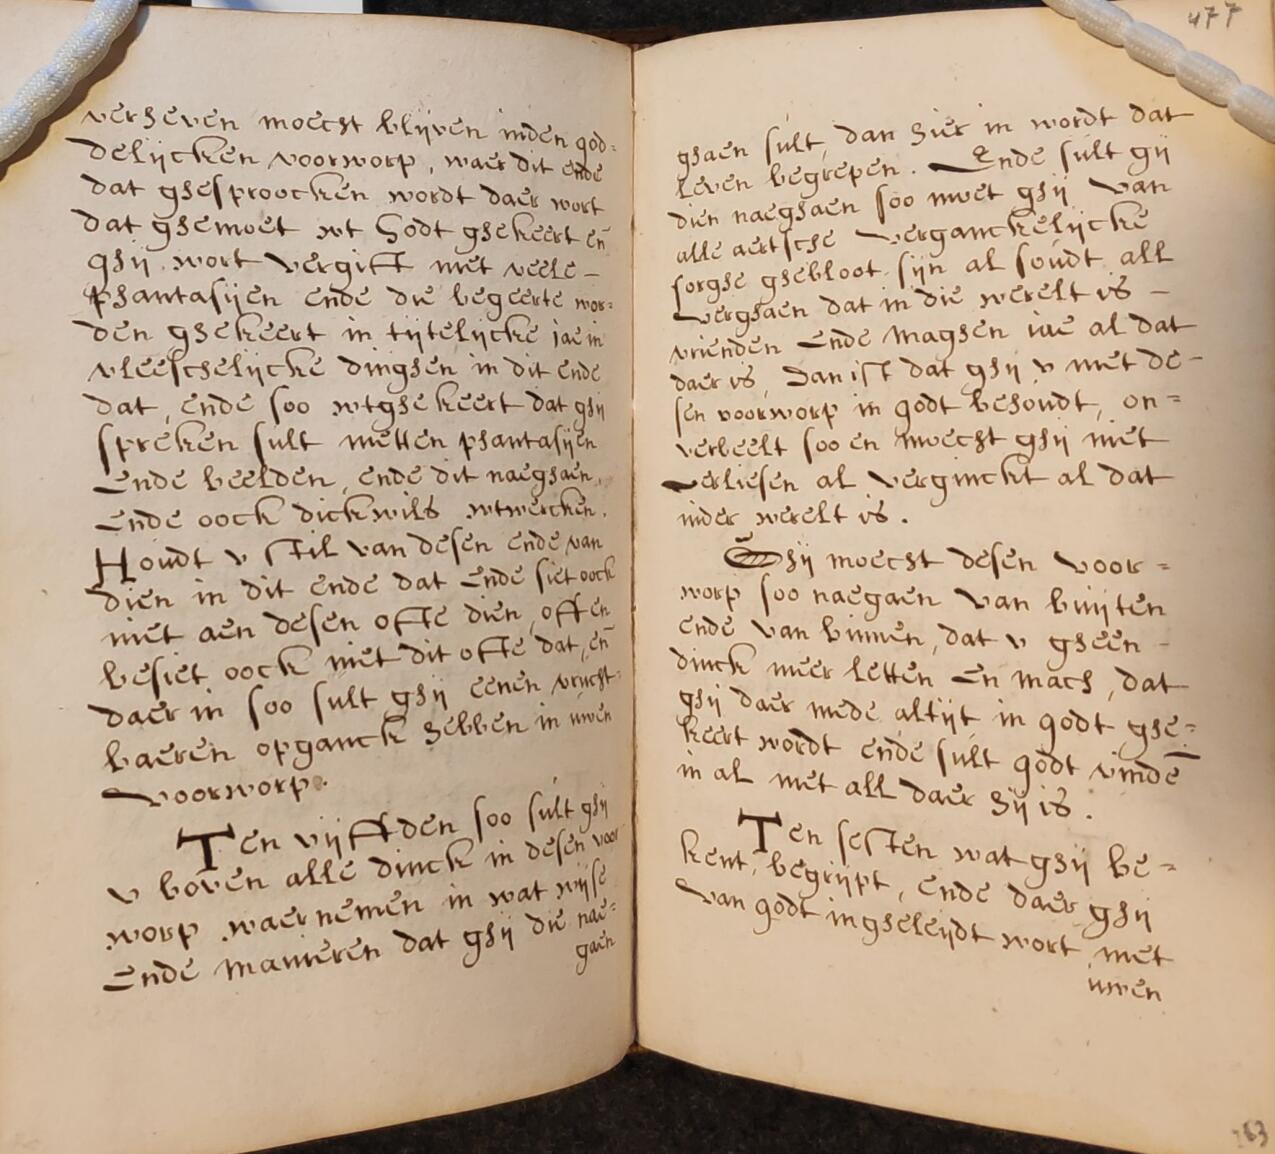 verheven moecht blijven inden god-
delijcken voorworp, waer dit ende
dat ghesproocken wordt daer wort
dat ghemoet wt Godt ghekeert en̄
ghij wort vergift met veele –
phantasijen ende die begeerte wor-
den ghekeert in tijtelijcke jae in
vleeschelijcke dinghen in dit ende
dat, ende soo wtghekeert dat ghij
spreken sult metten phantasijen
Ende beelden, ende dit naeghaen,
Ende oock dickwils wtwercken.
Houdt v stil van desen ende van
dien in dit ende dat Ende siet oock
niet aen desen ofte dien, often
besiet oock niet dit ofte dat, en̄
daer in soo sult ghij eenen vrucht-
baeren opganck hebben in uwen
voorworp.
Ten vijftden soo sult ghij
v boven alle dinck in desen voor
worp waernemen in wat wijse
Ende manieren dat ghij die nae-
gaen
477
ghaen sult, dan hier in wordt dat
leven begrepen. Ende sult gij
dien naeghaen soo moet ghij van
alle aertsche verganckelijcke
sorghe ghebloot sijn al soudt all
verghaen dat in die werelt is –
vrienden Ende maghen iae al dat
daer is, Dan ist dat ghij v met de-
sen voorworp in godt behoudt, on-
verbeelt soo en moecht ghij niet
verliesen al verginckt al dat
inder werelt is.
Ghij moecht desen voor-
worp soo naegaen van buijten
ende van binnen, dat v gheen –
dinck meer letten En mach, dat
ghij daer mede altijt in godt ghe-
keert wordt ende sult godt vindē
in al met all daer hij is.
Ten sesten wat ghij be-
kent, begrijpt, ende daer ghij
van godt ingheleijdt wort, met
uwen
163